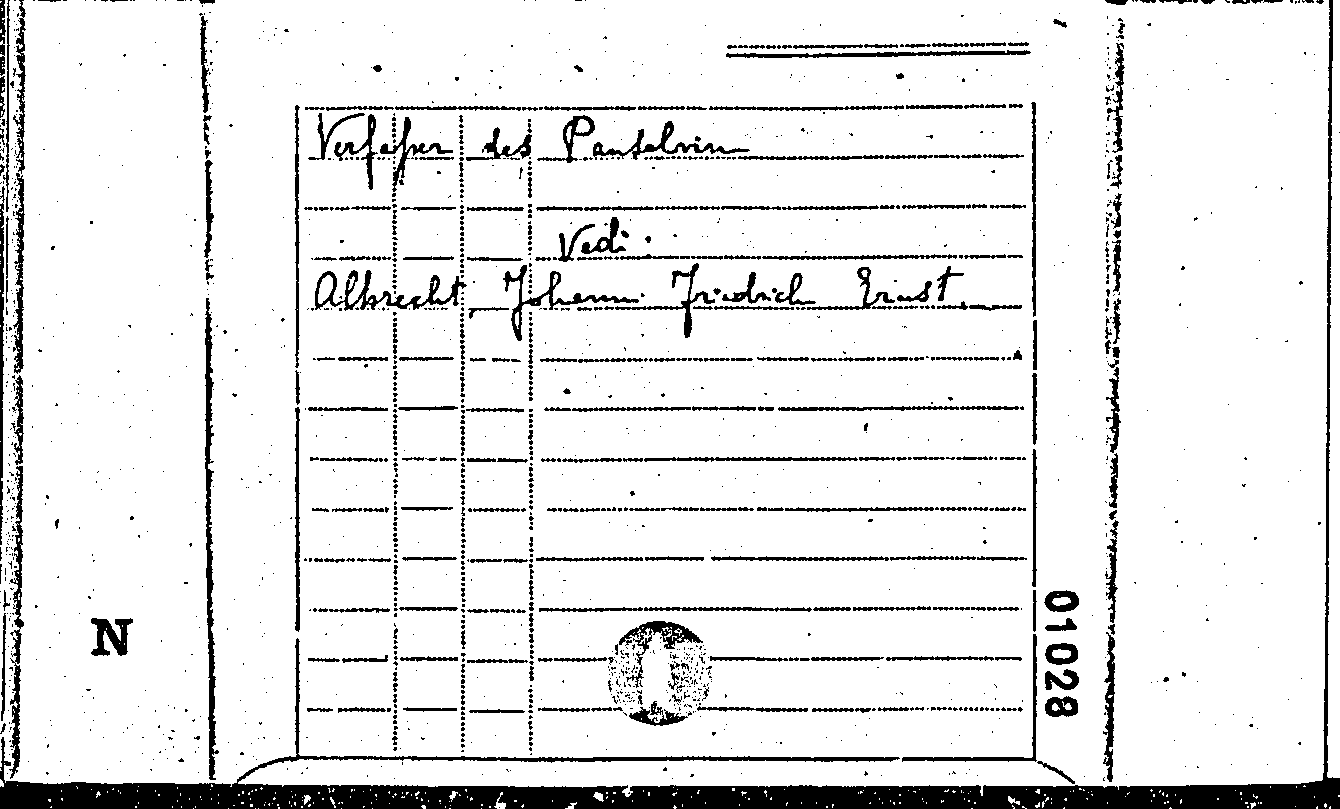 Verfaßer des Pansalvin
Vedi:
Albrecht, Johann Friedrich Ernst.
N
01028